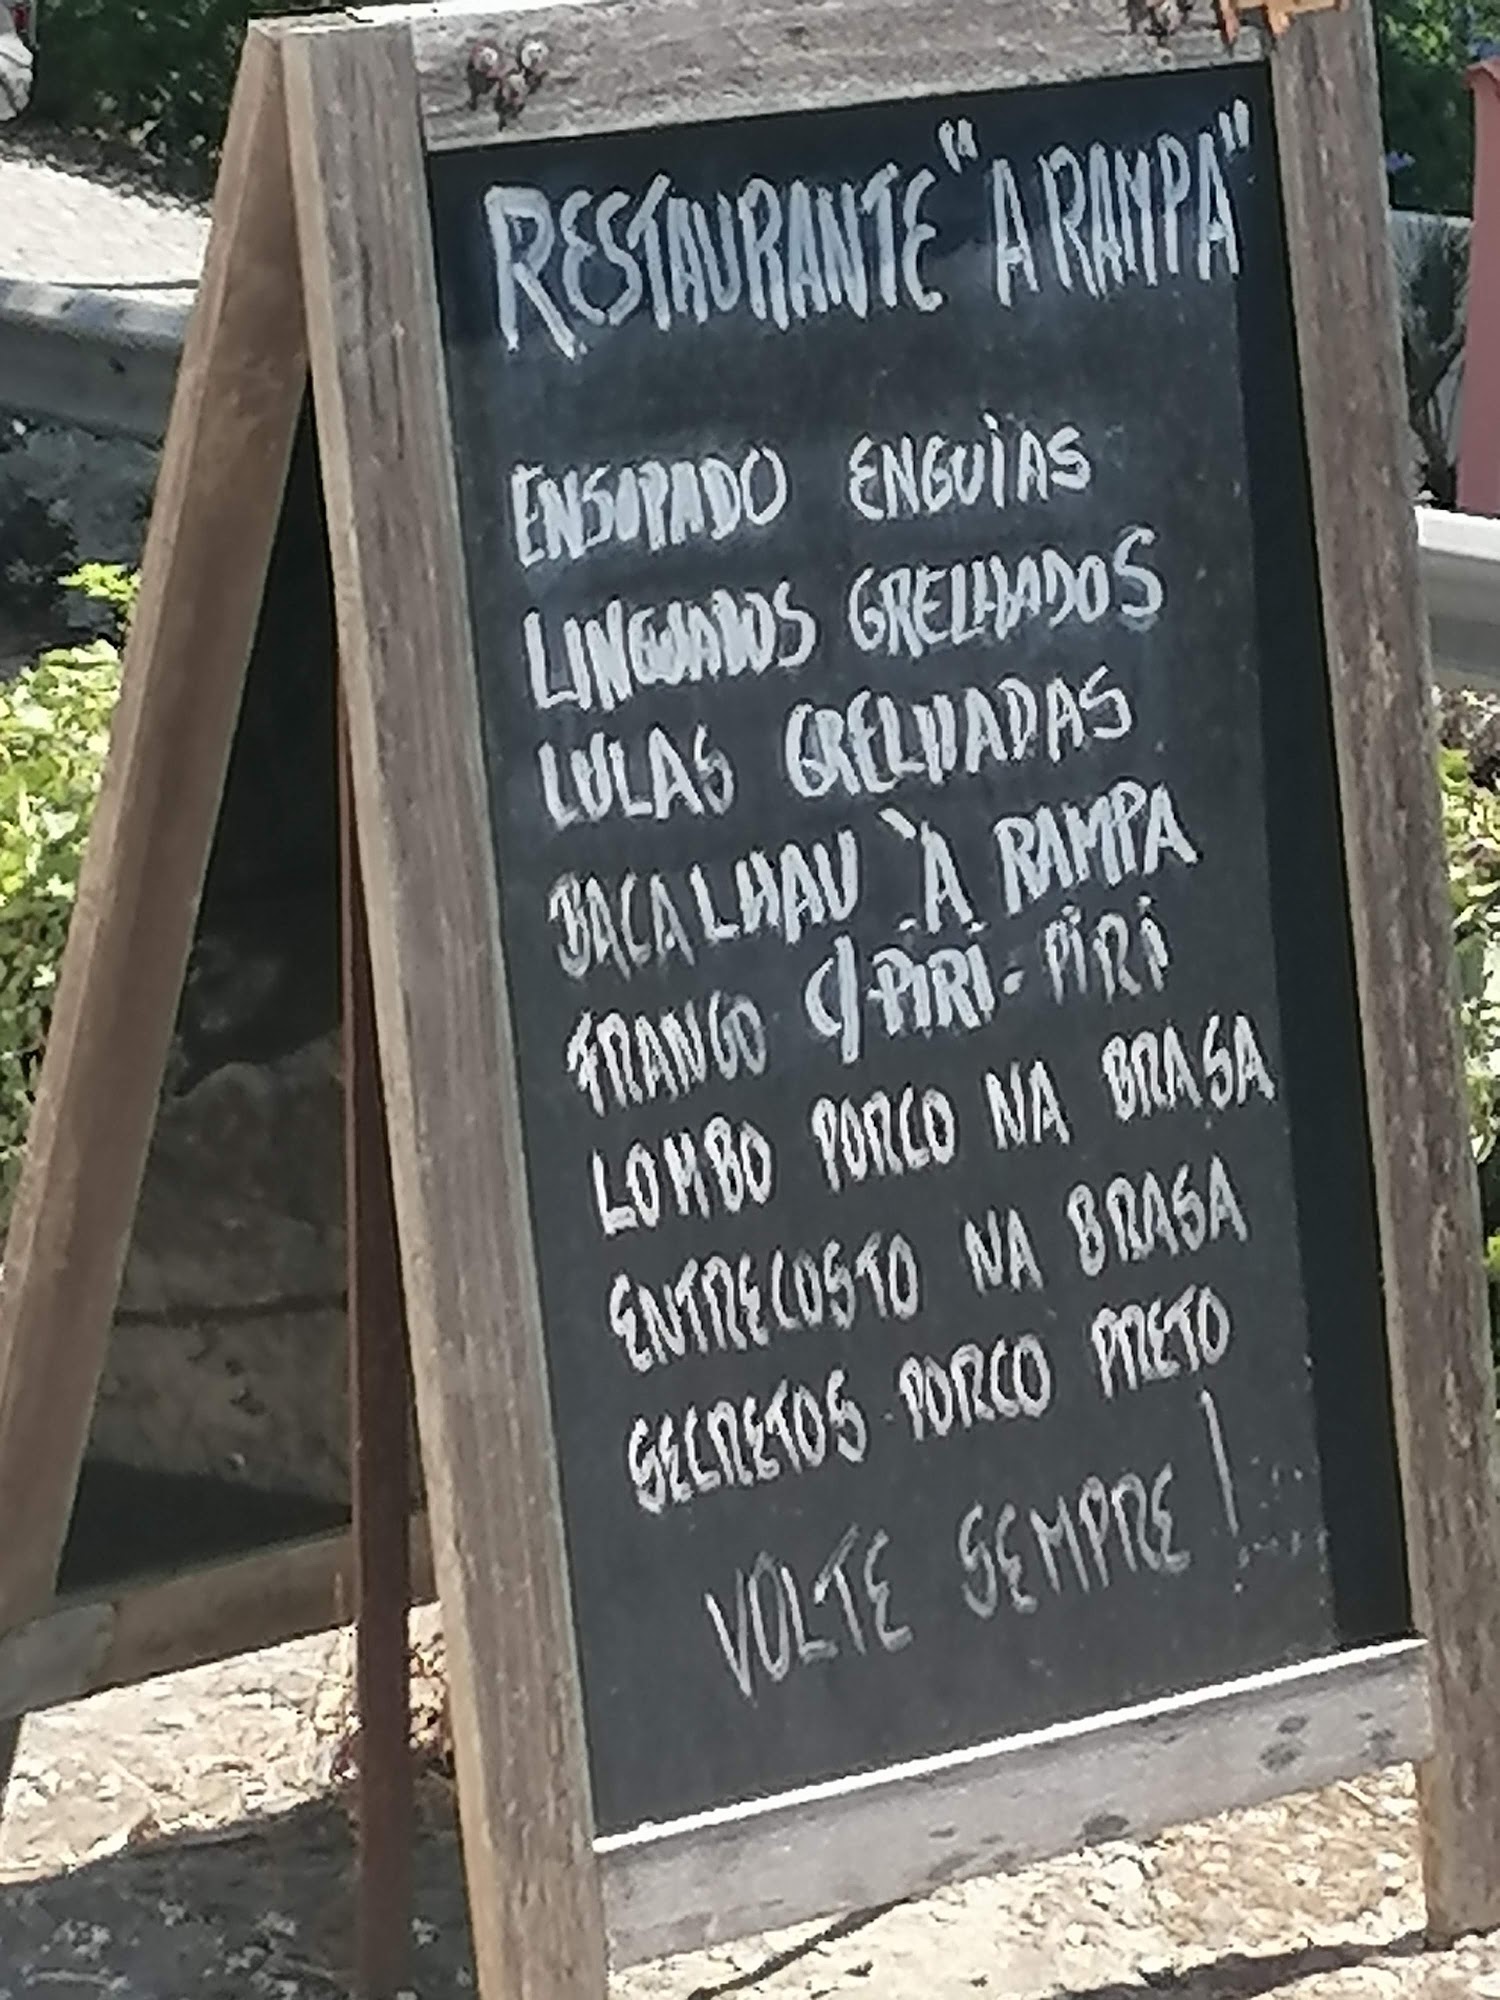 RESTAURANTE "A RAMPA"
ENSOPADO ENGUIAS
LINGUADOS GRELHADOS
LULAS GRELHADAS
BACALHAU À RAMPA
FRANGO C/PIRI-PIRI
LOMBO PORCO NA BRASA
ENTRECOSTO NA BRASA
SECRETOS PORCO PRETO
VOLTE SEMPRE!